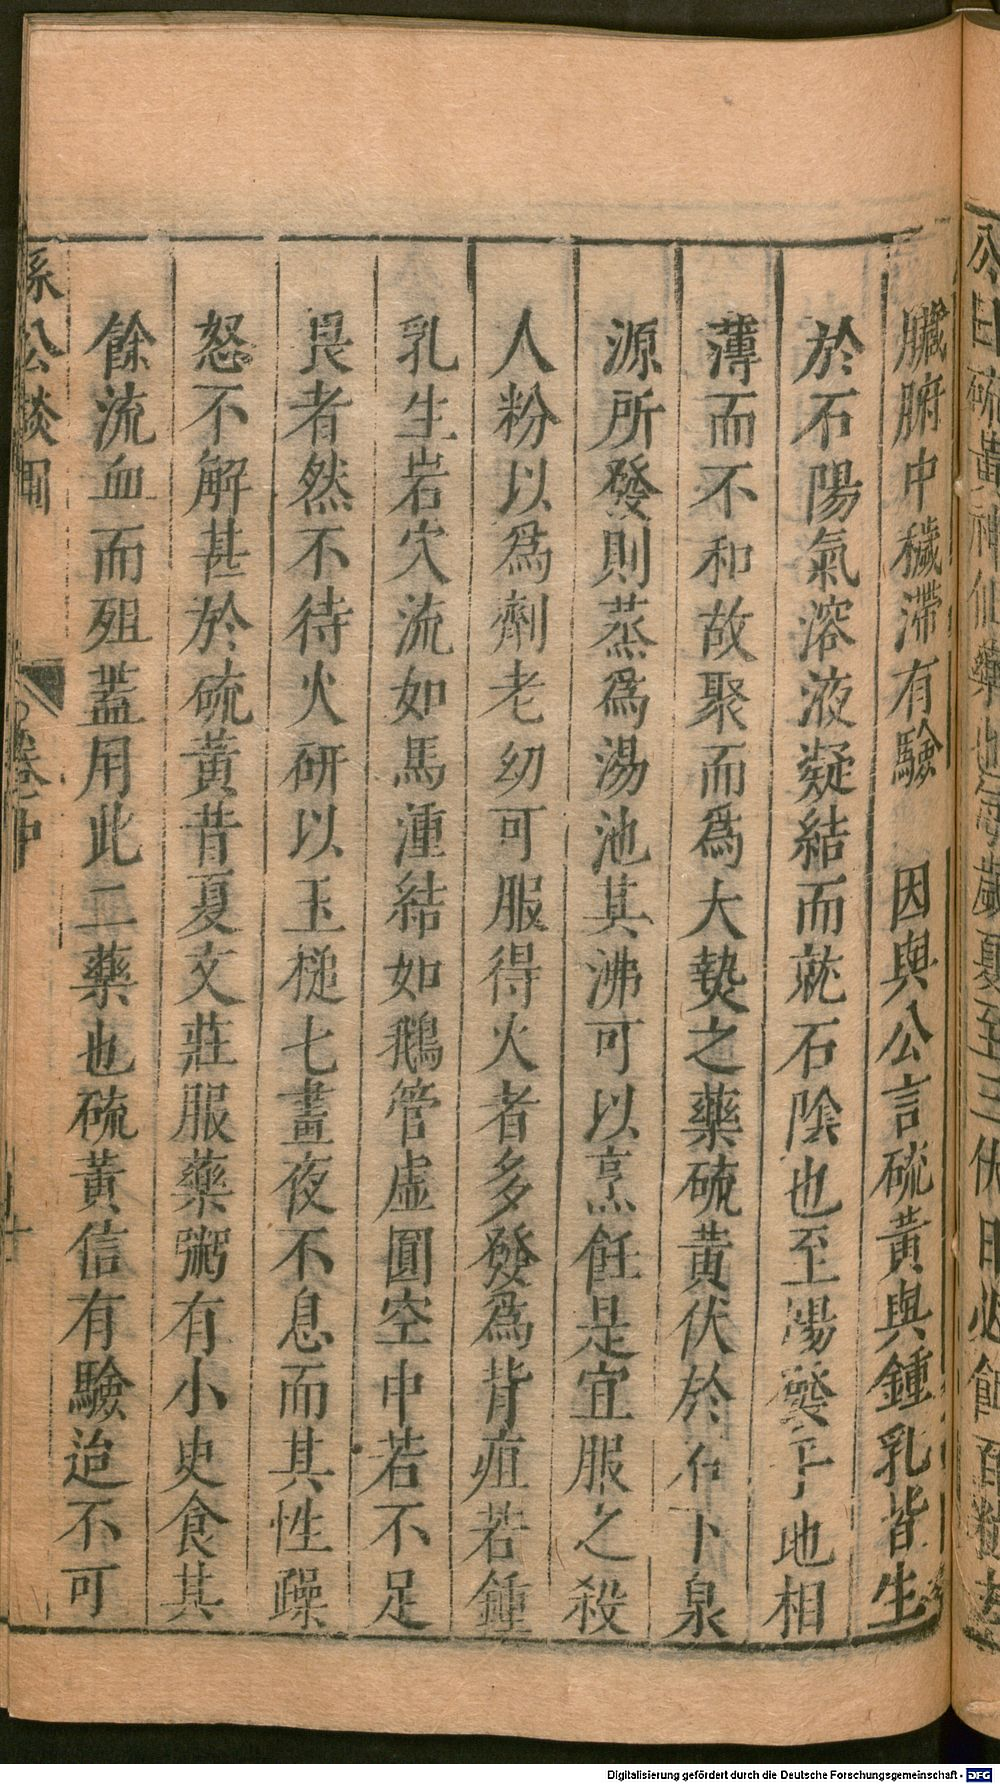 公曰硫黄神仙藥也
歲夏至三伏日必餌百粒去
臟腑中穢滯有驗　因與公言硫黃與鍾乳皆生
於石陽氣溶液凝結而就石陰也至陽發于地相
薄而不和故聚而爲大𤍠之藥硫黃伏於石下泉
源所發則蒸爲湯池其沸可以烹飪是宜服之殺
人粉以爲劑老幼可服得火者多發爲背疽若鍾
乳生岩穴流如馬湩結如鵝管虛圓空中若不足
畏者然不待火研以玉槌七晝夜不息而其性躁
怒不解甚於硫黃昔夏文莊服藥粥有小史食其
餘流血而殂蓋用此二藥也硫黃信有驗迨不可
孫公談圃
卷中
十
Digitalisierung gefördert durch die Deutsche Forschungsgemeinschaft - DFG